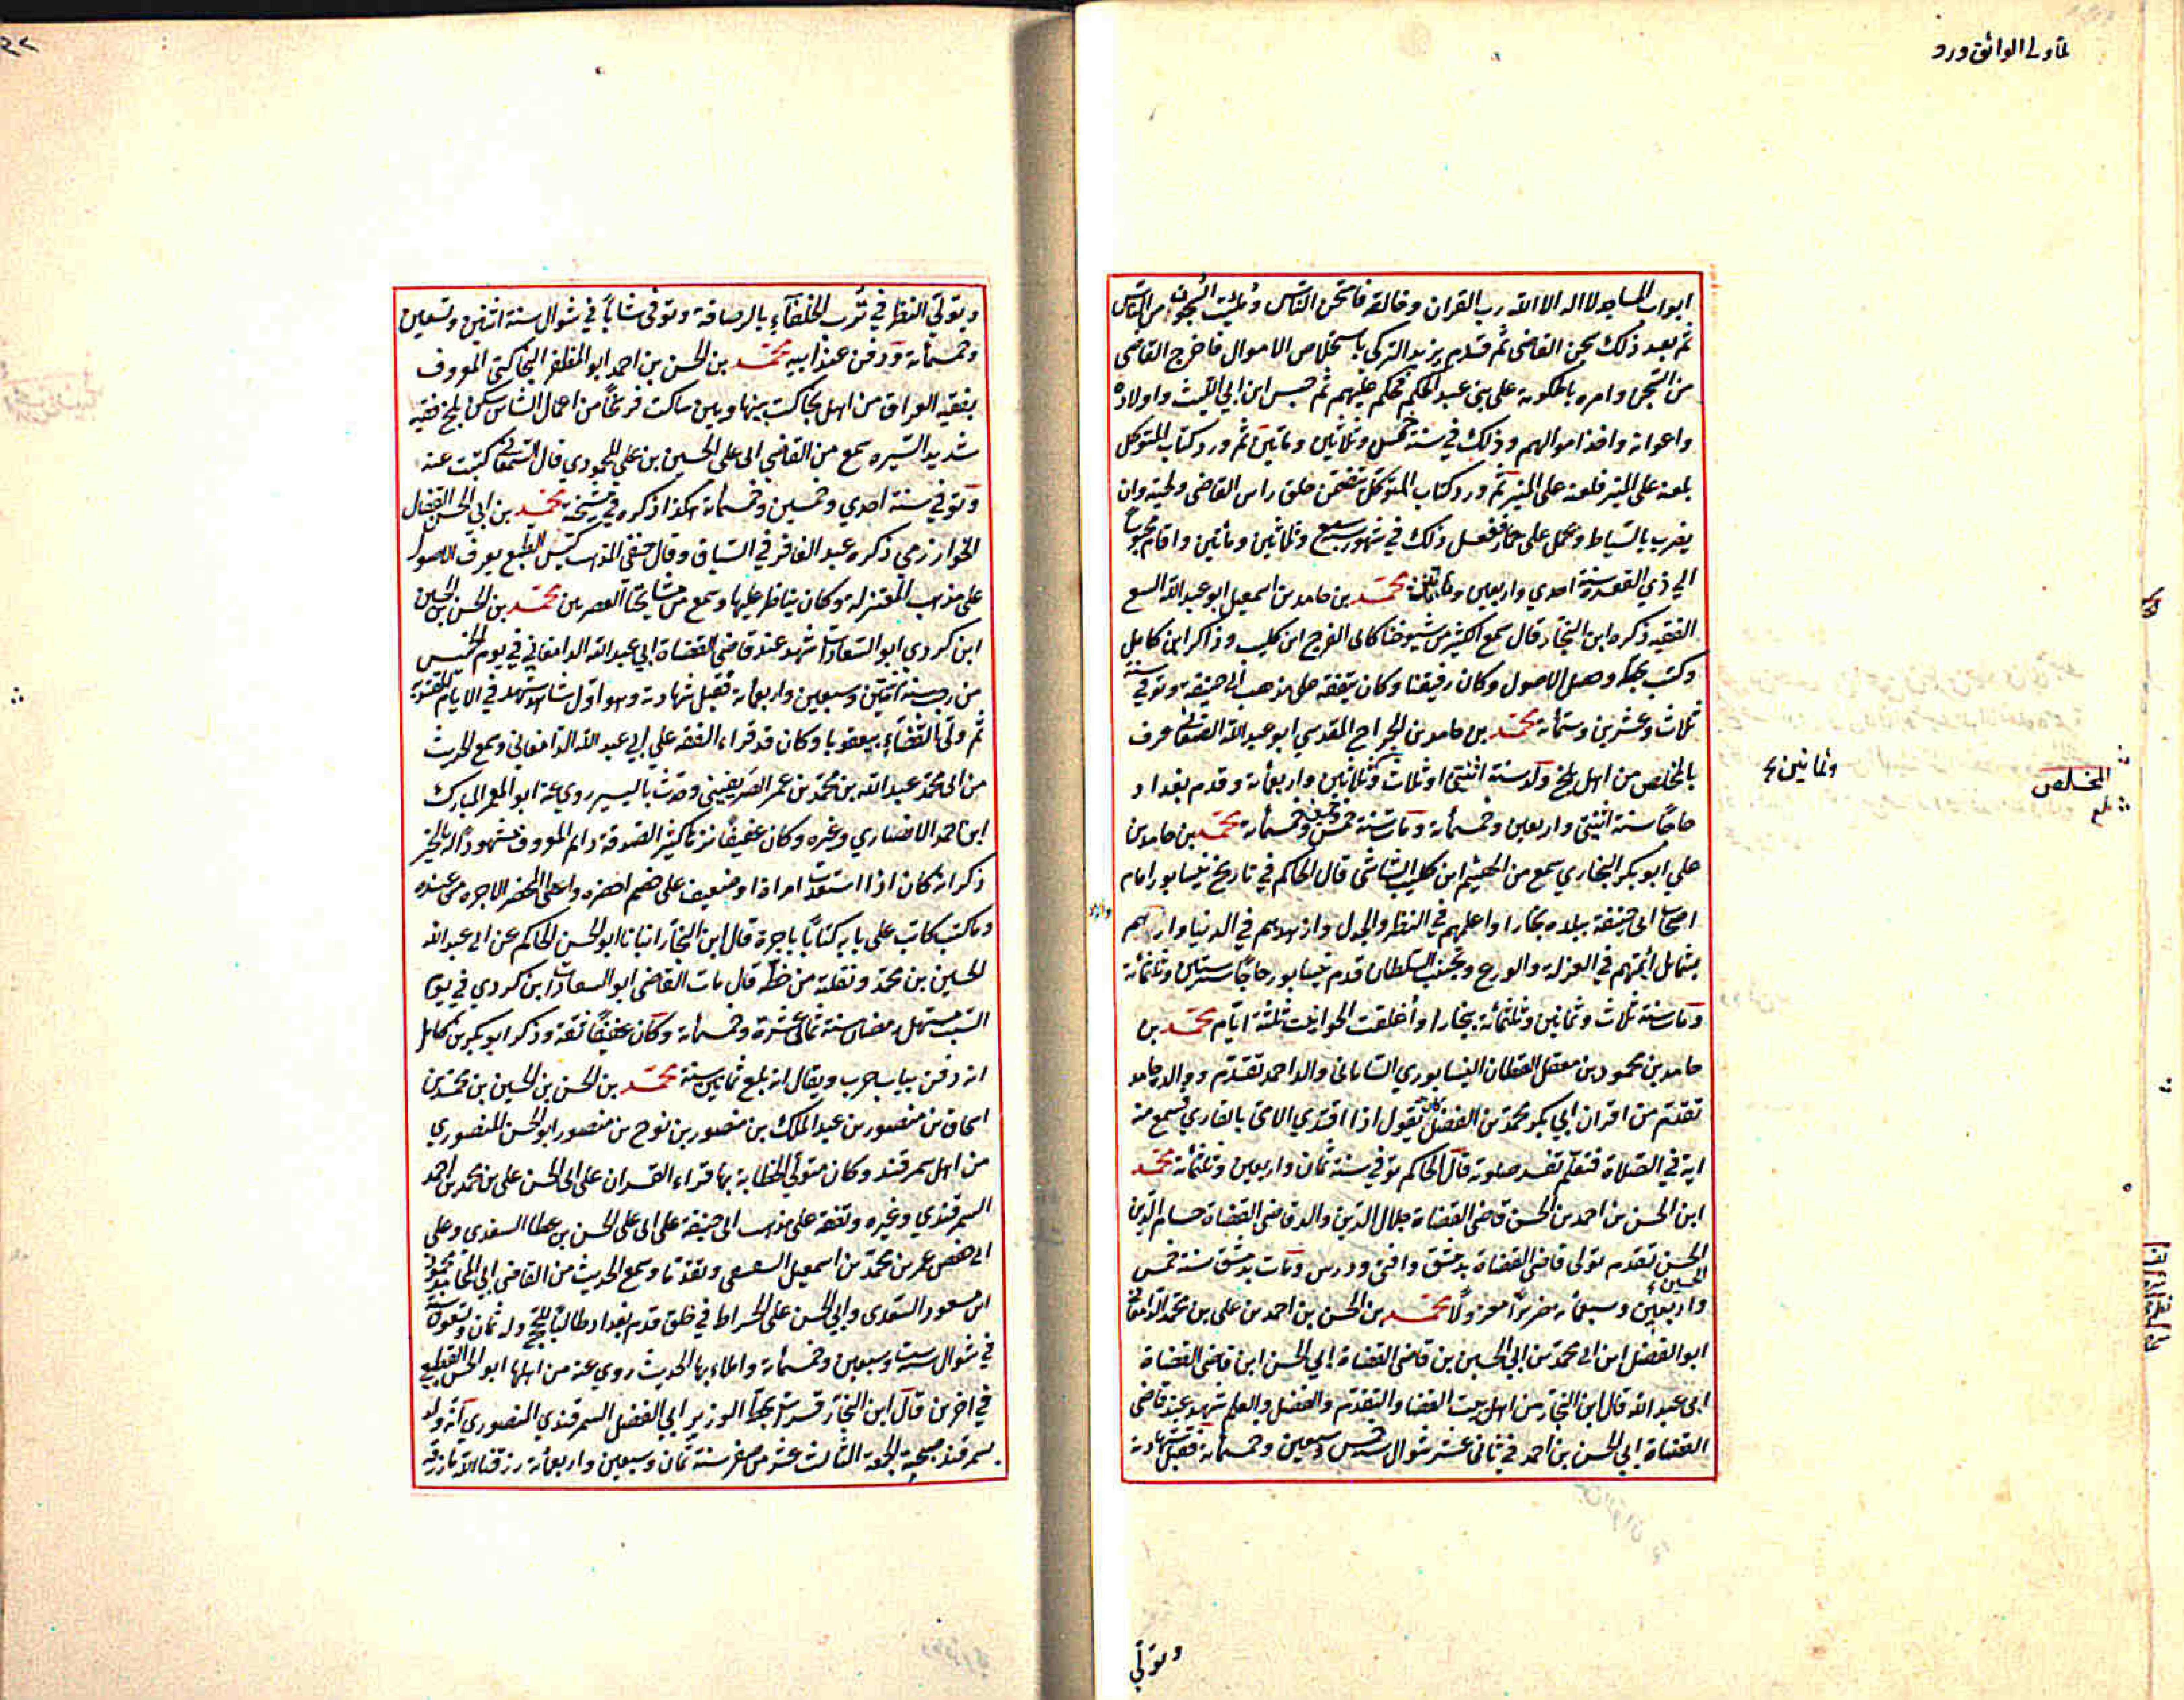 لما ولى الواثق ورد
ابواب المساجد لا اله الا الله رب القران وخالقه فامتحن الناس وملئت السجون من الناس
ثم بعد ذلك سجن القاضى ثم قدم يزيد التركى باستخلاص الاموال فاخرج القاضى
من السجن وامره بالحكومة على بنى عبد الحكم فحكم عليهم ثم حبس ابن ابي الليث واولاده
واعوانه واخذ اموالهم وذلك في سنة خمس وثلاثين وماتين ثم ورد كتاب المتوكل
بلعنه على المنبر فلعنه على المنبر ثم ورد كتاب المتوكل يتضمن حلق راس القاضى ولحيته وان
يضرب بالسياط ويحمل على حمار ففعل ذلك في شهور سبع وثلاثين ومأتين واقام محبوسا
الي ذي القعدة سنة احدي واربعين ومأتين محمد بن حامد بن اسمعيل ابو عبد الله
الفقيه ذكره ابن النجار قال سمع اكثر من شيوخنا كابى الفرج ابن كليب وذاكر ابن كامل
وكتب بخطه وحصل الاصول وكان رفيقنا وكان يتفقه على مذهب ابي حنيفة وتوفي سنة
ثلاث وعشرين وستمأة محمد بن حامد بن الجراح المقدسي ابو عبد الله عرف
بالمخلص من اهل بلخ ولد سنة اثنتى او ثلاث وثلاثين واربعمأة وقدم بغداد
حاجا سنة اثنتى واربعين وخمسمأة ومات سنة خمس وخمسين وخمسمأة محمد بن حامد بن
علي ابو بكر البخاري سمع من الهيثم ابن كليب الشاشى قال الحاكم في تاريخ نيسابور امام
اصحاب ابي حنيفة ببلده بخارا واعلمهم في النظر والجدل وازهدهم في الدنيا
بشمايل ائمتهم في العزلة والورع وتجنب السلطان قدم نيسابور حاجا سنة ستين وثلثمأة
ومات سنة ثلاث وثمانين وثلثمائة ببخارا وأغلقت الحوانيت ثلثة ايام محمد بن
حامد بن محمود بن معقل القطان النيسابوري الشامانى والد احمد تقدم ووالده حامد
تقدم من اقران ابي بكر محمد بن الفضل كان يقول اذا اقتدي الامى بالقاري فسمع منه
اية في الصلاة فتعلم تفسد صلوته قال الحاكم توفي سنة ثمان واربعين وثلثمأة محمد
ابن الحسن بن احمد بن الحسن قاضى القضاة جلال الدين والد قاضى القضاة حسام الدين
الحسن تقدم تولى قاضى القضاة بدمشق وافتى ودرس ومات بدمشق سنة خمس
واربعين وسبعمأة معزولا محمد بن الحسن بن احمد بن على بن محمد الدامغانى
ابو الفضل ابن ابى محمد بن ابي الحسين بن قاضى القضاة ابي الحسن ابن قاضى القضاة
ابى عبد الله قال ابن النجار من اهل بيت القضا والتقدم والفضل والعلم شهد عند قاضى
القضاة ابي الحسن بن احمد في ثانى عشر شوال سنة خمس وسبعين وخمسمأة فقبل شهادته
وثمانين
المخلص
بلخ
وتولي
ويتولي النظر في ترب الخلفآء بالرصافة وتوفى شابا في شوال سنة اثنين وتسعين
وخمسمأة ودفن عند ابيه محمد بن الحسن بن احمد ابو المظفر البخاكتى المعروف
بفقيه العراق من اهل من اعمال الشاش سكن بلخ فقيه
شديد السيره سمع من القاضي ابى على الحسين بن علي المحمودي قال السمعاني كتبت عنه
وتوفي سنة احدي وخمسين وخمسمأة هكذا ذكره في مشيخته محمد بن ابي الحسن الفضال
الخوارزمي ذكره عبد الغافر في السياق وقال حنفي المذهب كيس الطبع يعرف الاصول
على مذهب المعتزلة وكان يناظر عليها وسمع من مشايخنا العصريين محمد بن الحسن بن الحسين
ابن كردي ابو السعادات شهد عند قاضي القضاة ابي عبد الله الدامغاني في يوم الخميس
من رجب سنة اثنتين وسبعين واربعمأة فقبل شهادته وهو اول شاهد شهد في الايام المقتدية
ثم ولى القضآء ببعقوبا وكان قد قراء الفقه علي ابي عبد الله الدامغاني وسمع الحديث
من ابى محمد عبد الله بن محمد بن عمر الصريفيني وحدث باليسير روي عنه ابو المعمر المبارك
ابن احمد الانصاري وغيره وكان عفيفا نزها كثير الصدقة دايم المعروف مشهودا له بالخير
ذكر انه كان اذا استعدت امراة او ضعيف على خصم احضره واعطى المحضر الاجره من عنده
وما كتب كاتب على بابه كتابا باجرة قال ابن النجار انبانا ابو الحسن الحاكم عن ابى عبد الله
الحسين بن محمد ونقلته من خطه قال مات القاضى ابو السعادات ابن كردي في يوم
السبت مستهل رمضان سنة ثمانى عشرة وخمسمأة وكان عفيفا ثقة وذكر ابو بكر بن كامل
انه دفن بباب حرب ويقال انه بلغ ثمانين سنة محمد بن الحسن بن الحسين بن محمد بن
اسحاق بن منصور بن عبد الملك بن منصور بن نوح بن منصور ابو الحسن المنصوري
من اهل سمرقند وكان متولي الخطابة بها قراء القران على ابى الحسن على بن محمد بن احمد
السمرقندي وغيره وتفقه على مذهب ابى حنيفة على ابى على الحسن بن عطا السغدي وعلى
ابى حفص عمر بن محمد بن اسمعيل وسمع الحديث من القاضى ابي المحامد محمود
ابن مسعود السغدي وابي الحسن على الخراط في خلق قدم بغداد طالبا للحج وله ثمان وتسعون سنة
في شوال سنة ست وسبعين وخمسمأة واملاء بها الحديث روي عنه من اهلها ابو الحسن القطيعي
في اخرين قال ابن النجار قرات بخط الوزير ابي الفضل السمرقندي المنصوري انه ولد
بسمرقند صبيحة الجمعة الثالث عشر من صفر سنة ثمان وسبعين واربعمأة